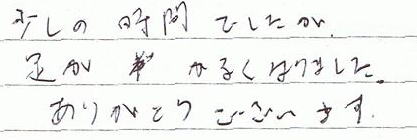 少しの時間でしたが、
足がかるくなりました。
ありがとうございます。